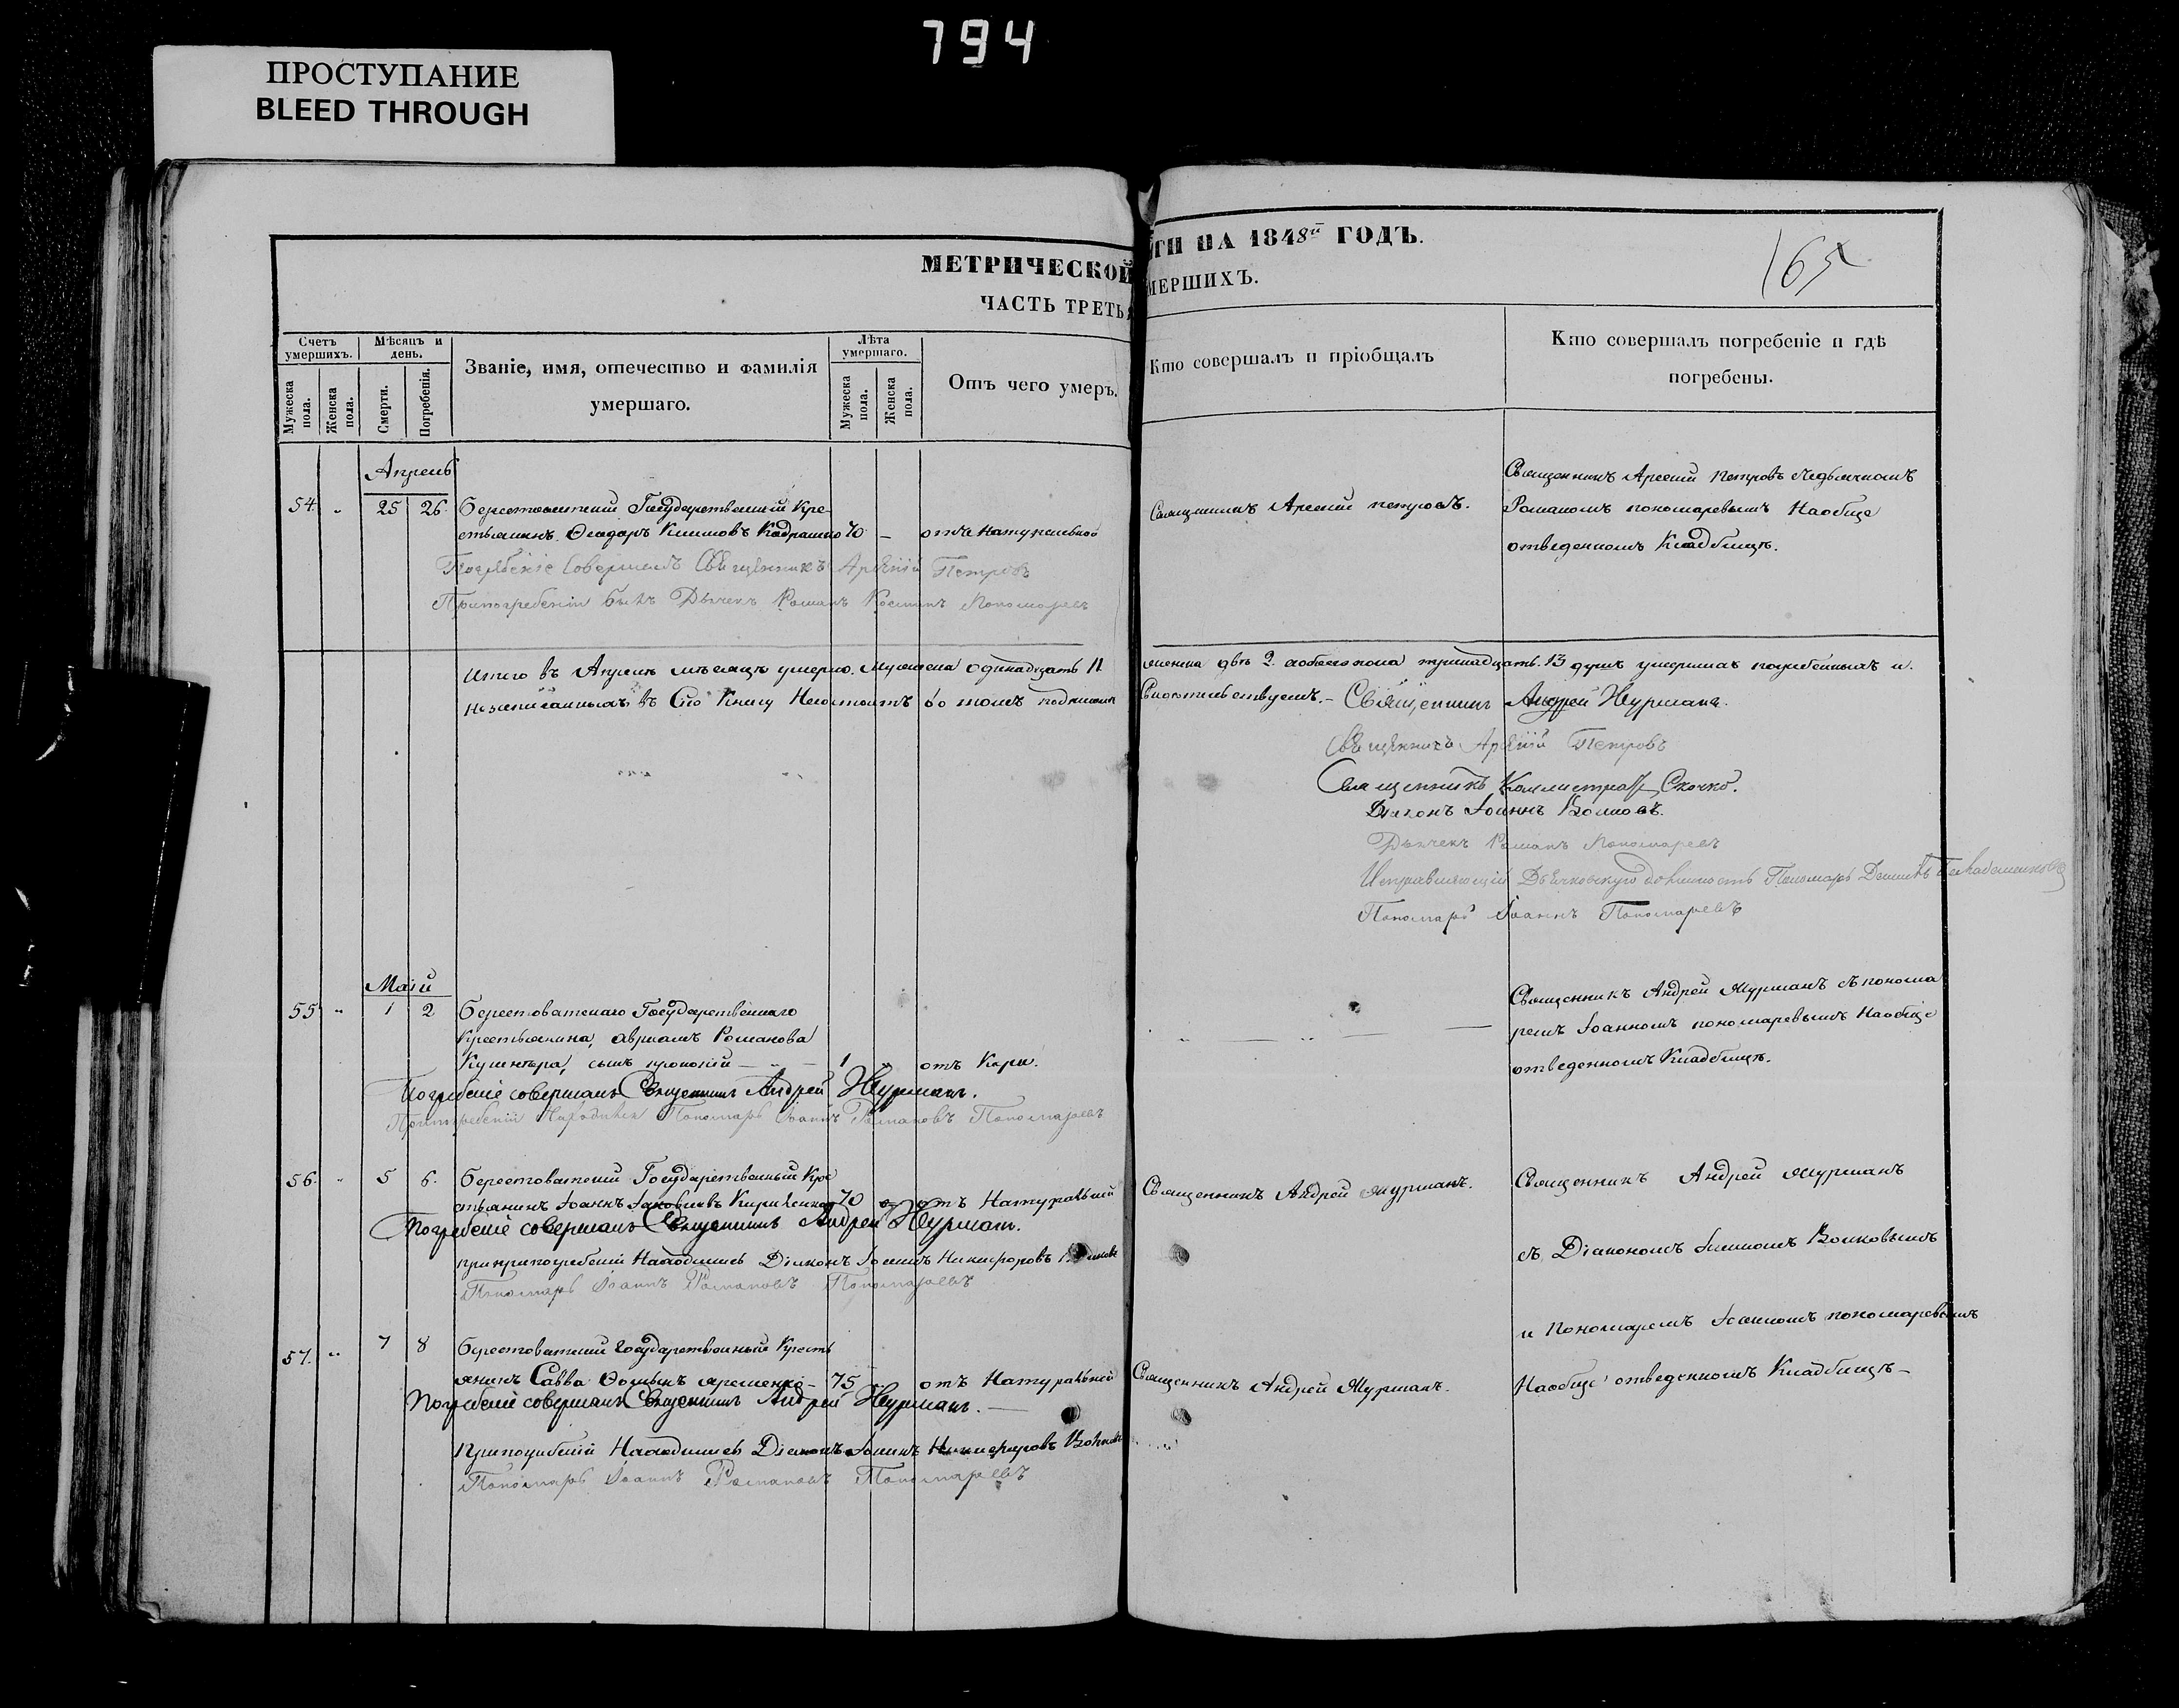 794
ПРОСТУПАНИЕ
BLEED THROUGH
МЕТРИЧЕСКОЙ
ГИ НА 1848й ГОДЪ.
165
ЧАСТЬ ТРЕТЬЯ
МЕРШИХЪ.
Счетъ умершихъ.
Мѣсяцъ и день.
Званіе, имя, отечество и фамилія умершаго.
Лѣта умершаго.
Отъ чего умеръ.
Кто совершалъ и пріобщалъ
Кто совершалъ погребеніе и гдѣ погребены.
Мужеска пола.
Женска пола.
Смерти.
Погребенія.
Мужеска пола.
Женска пола.
Апрель
54. „ 25 26 Берестоватский Государственный Кре-
стьянинъ Ѳеодоръ Климовъ 70 – отъ Натуральной
Священникъ Арсений петровъ.
Священникъ Арсений петровъ
Романомъ пономаревымъ Наобще
отведенномъ Кладбищѣ.
Погребеніе Совершалъ Священникъ Арсеній Петровъ
Дьячекъ Романъ Пономаревъ
Итого въ Апрелѣ мѣсяцѣ умерло. Мужеска одинадцать 11
женска двѣ 2 обоего пола тринадцать. 13 душъ умершихъ погребенныхъ и.
Незаписанныхъ въ Сію Книгу Несостоитъ во томъ
Свидетельствуемъ. – Священникъ Андрей Журманъ.
Священникъ Арсеній Петровъ
Священникъ Каллистратъ Скочко.
Діаконъ Іоаннъ Волковъ.
Дьячекъ Романъ Пономаревъ
Исправляющій Дьячковскую должность Пономарь
Пономарь Іоаннъ Пономаревъ
Маій
55 „ 1 2 Берестоватскаго Государственнаго
Крестьянина, Романова
сынъ 1 „ отъ Кори.
Священникъ Андрей Журманъ съ понома
ремъ Іоанномъ пономаревымъ Наобще
отведенномъ Кладбищѣ.
Погребеніе совершалъ Священникъ Андрей Журманъ.
Пономарь Іоаннъ Романовъ Пономаревъ
56. „ 5 6. Берестоватский Государственный Кре
стьянинъ Іоаннъ Іаковлевъ Кириленко 70 отъ Натуральной
Священникъ Андрей Журманъ.
Священникъ Андрей Журманъ
съ Діакономъ Іоанномъ Волковымъ
и Пономаремъ Іоанномъ пономаревымъ
Наобще отведенномъ Кладбищѣ –
Погребеніе совершалъ Священникъ Андрей Журманъ.
Находились Діаконъ Іоаннъ Никифоровъ
Пономарь Іоаннъ Романовъ Пономаревъ
57. „ 7 8 Берестоватский Государственный Кресть
янинъ Савва Ѳоминъ 75 „ отъ Натуральной
Священникъ Андрей Журманъ.
Погребеніе совершалъ Священникъ Андрей Журманъ. –
Припогребеніи Находились Діаконъ Іоаннъ Никифоровъ Волковъ
Пономарь Іоаннъ Романовъ Пономаревъ